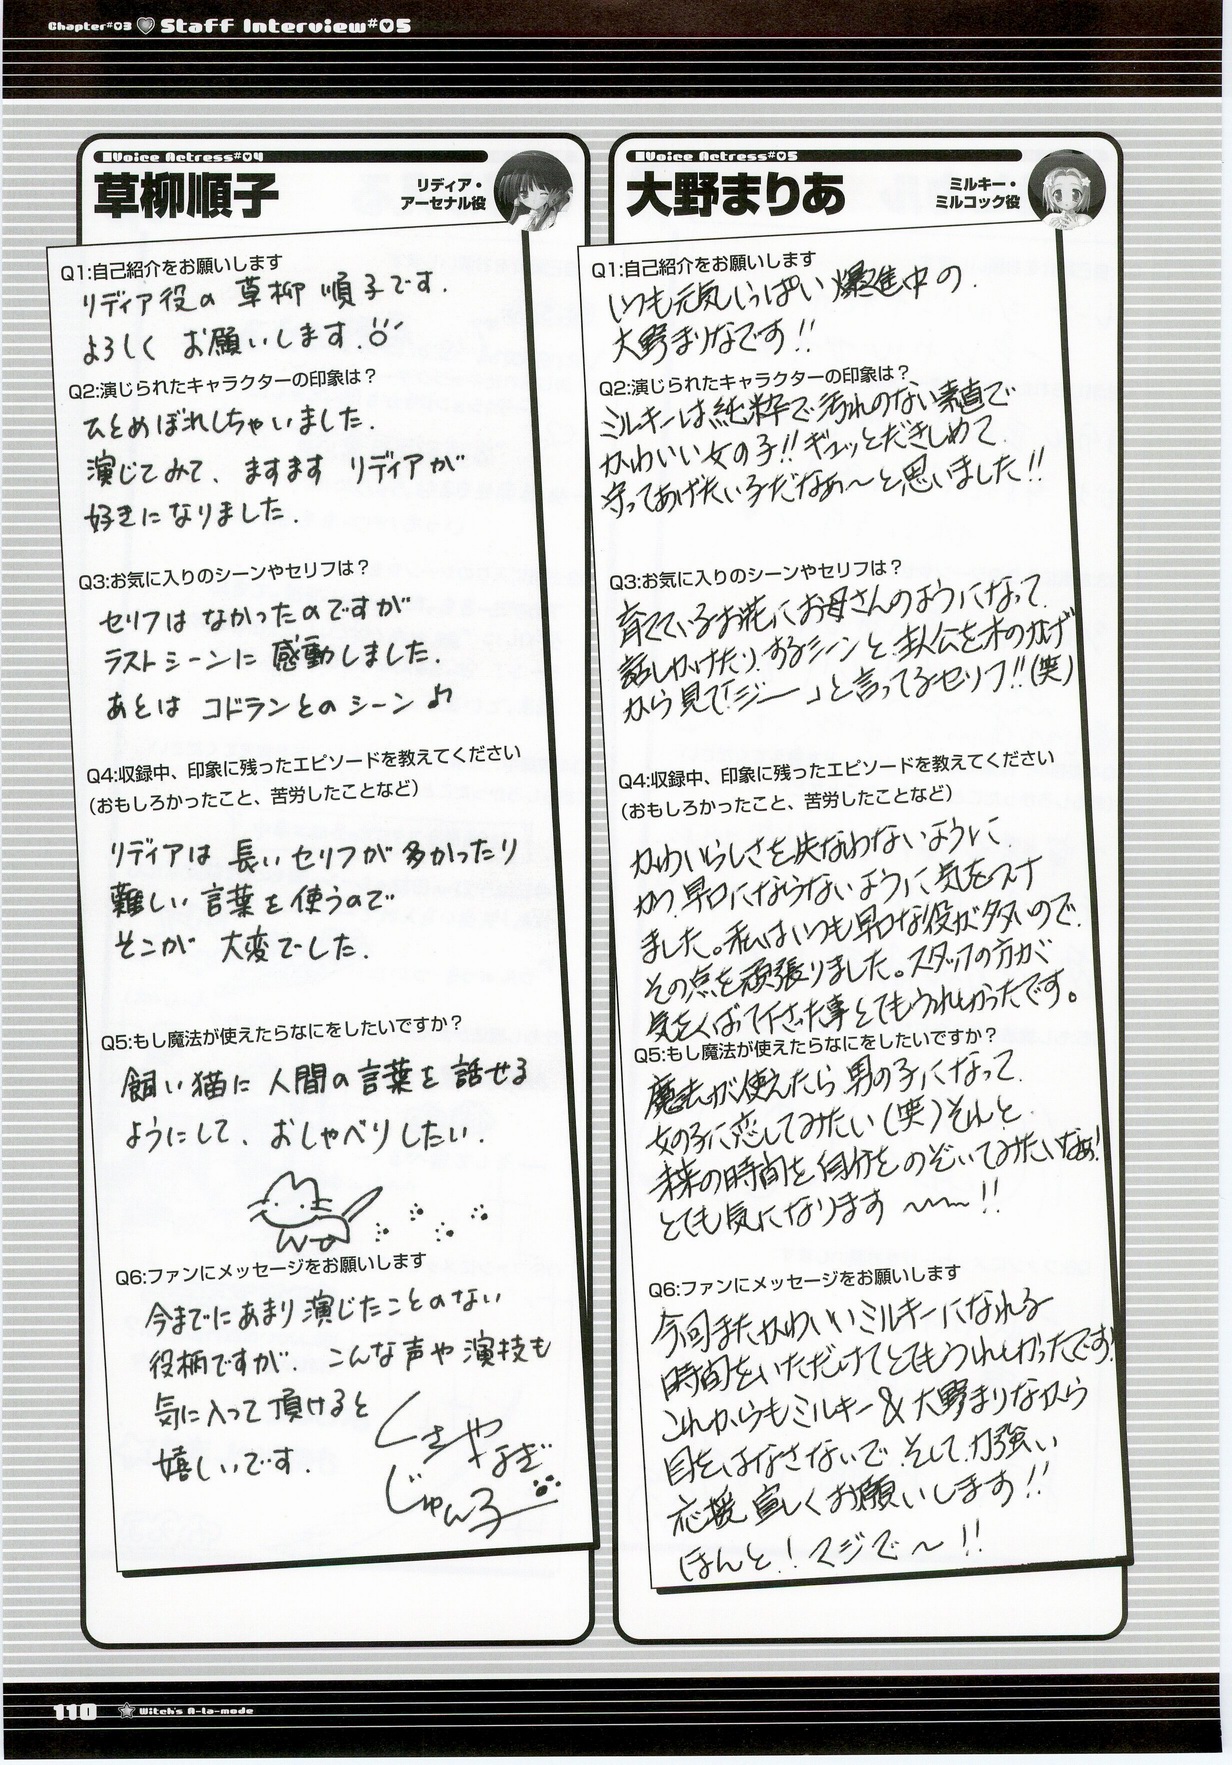 Chapter#03 Staff Interview#05
Voice Actress#04
草柳順子
リディア・
アーセナル役
Q1:自己紹介をお願いします
リディア役の 草柳 順子です.
よろしく お願いします.
Q2:演じられたキャラクターの印象は？
ひとめぼれしちゃいました.
演じてみて、ますます リディアが
好きになりました.
Q3:お気に入りのシーンやセリフは？
セリフは なかったのですが
ラストシーンに 感動しました.
あとは コドランとの シーン♪
Q4:収録中、印象に残ったエピソードを教えてください
（おもしろかったこと、苦労したことなど）
リディアは 長い セリフが 多かったり
難しい 言葉を 使うので
そこが 大変でした.
Q5:もし魔法が使えたらなにをしたいですか？
飼い猫に 人間の 言葉を 話せる
ようにして、おしゃべりしたい.
Q6:ファンにメッセージをお願いします
今までにあまり演じたことのない
役柄ですが、こんな声や演技も
気に入って頂けると
嬉しいです.
くさや
なぎ
じゅん子
Voice Actress#05
大野まりあ
ミルキー・
ミルコック役
Q1:自己紹介をお願いします
いつも元気いっぱい 爆進中の
大野まりなです!!
Q2:演じられたキャラクターの印象は？
ミルキーは純粋で汚れのない素直で
かわいい女の子!! ギュッとだきしめて
守ってあげたい子だなぁ〜と思いました!!
Q3:お気に入りのシーンやセリフは？
育てているお花にお母さんのようになって
話しかけたりするシーンと、主人公を木のかげ
から見て「ジー」と言ってるセリフ!!(笑)
Q4:収録中、印象に残ったエピソードを教えてください
（おもしろかったこと、苦労したことなど）
かわいらしさを失なわないように
かつ早口にならないように気をつけ
ました。私はいつも早口な役が多いので
その点を頑張りました。スタッフの方が
気をくばって下さった事とてもうれしかったです。
Q5:もし魔法が使えたらなにをしたいですか？
魔法が使えたら男の子になって
女の子に恋してみたい(笑)それと
未来の時間を自分をのぞいてみたいなぁ!
とても気になります〜〜!!
Q6:ファンにメッセージをお願いします
今回またかわいいミルキーになれる
時間をいただけてとてもうれしかったです!
これからもミルキー&大野まりなから
目をはなさないで そして力強い
応援宜しくお願いします!!
ほんと! マジで〜!!
110 Witch's A-la-mode